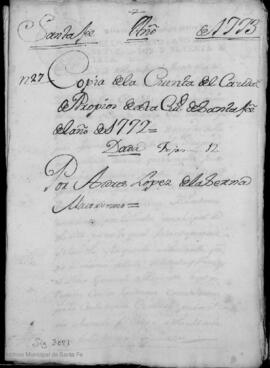 Santa Fee Año de 1773
Nº 27 Copia de la Cuenta del Caudal
de Propios de esta Ciud. de Santa Fee
del año de 1772 =
Data Fojas 12
Por Andres Lopez de la
Maiordomo
Sig 3001
Archivo Municipal de Santa Fe